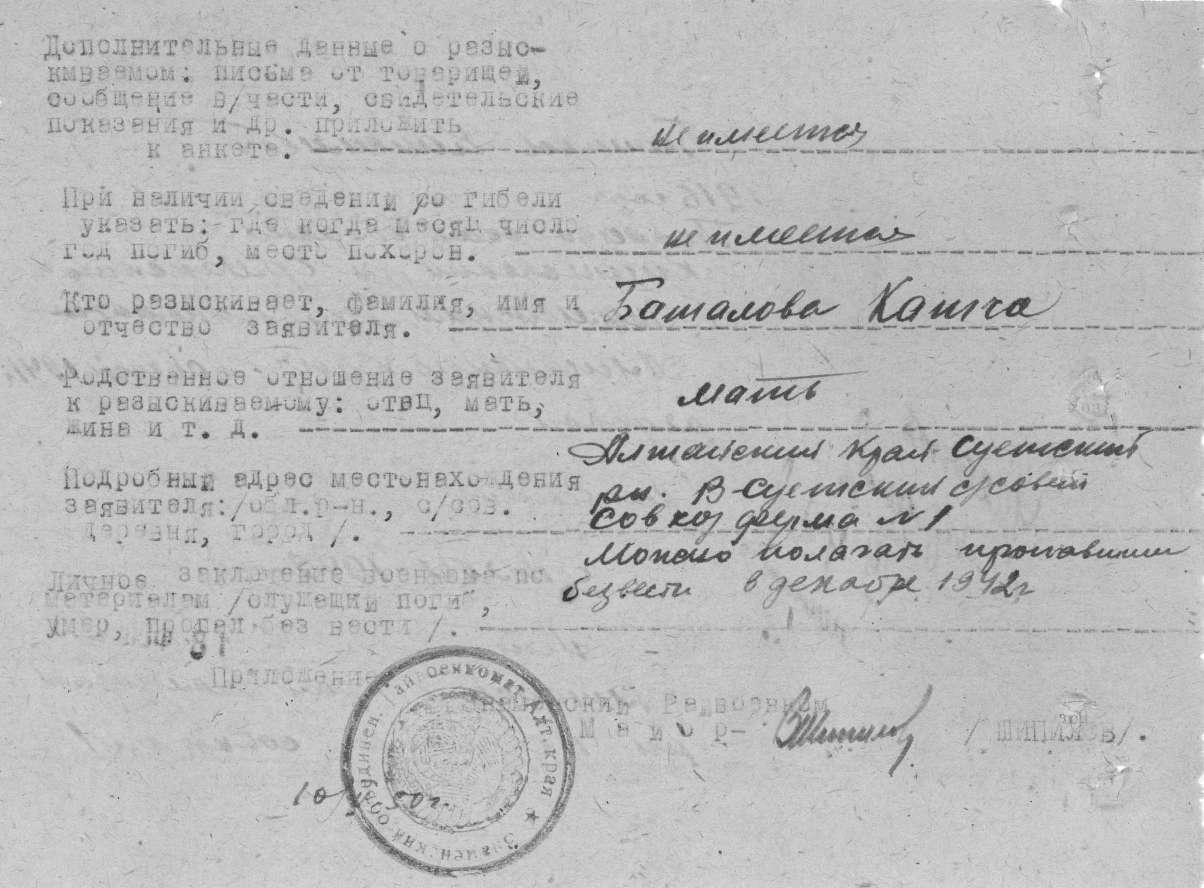 Дополнительные данные о разыс-
киваемом: письма от товарищей,
сообщение в/части, свидетельские
показания и др. приложить
к анкете. не имеется
При наличии сведений о гибели
указать: где когда месяц число
год погиб, место похорон. не имеется
Кто разыскивает, фамилия, имя и Баталова
отчество заявителя.
Родственное отношение заявителя
к разыскиваемому: отец, мать, мать
жина и т. д.
Алтайский край Суетский
Подробный адрес местонахождения
заявителя:/обл.р-н., с/сов. рн. В-Суетский с/совет
деревня, город /. Совхоз ферма №1
Можно полагать пропавшим
Личное заключение военкома по безвести в декабре 1942г
материалам /служащий погиб,
умер, пропал без вести /.
Приложение
Райвоенком
Майор- / /.
Знаменский объединен. Райвоенкомат Алт. края
10/ 50г.